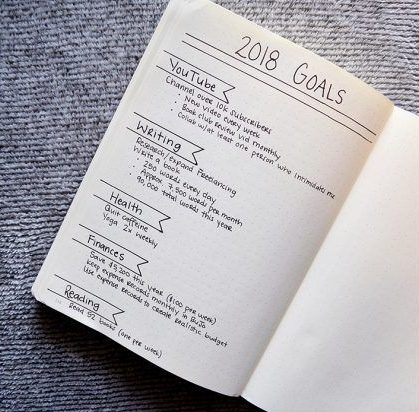 2018 GOALS
YouTube
Channel over 10k subscribers
• New video every week
• Book club review vid monthly
• Collab w/at least one person who intimidates me
Writing
Research/expand freelancing
Write a book
• 250 words every day
• Approx 7,500 words per month
• 90,000 total words this year
Health
Quit caffeine
Yoga 2x weekly
Finances
Save $5,200 this year ($100 per week)
Keep expense records monthly in BuJo
Use expense records to create realistic budget
Reading
Read 52 books (one per week)